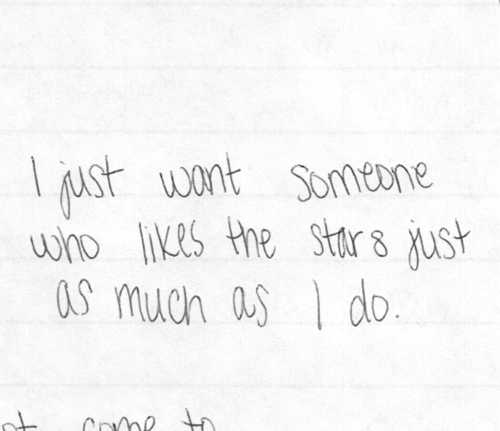 I just want someone
who likes the stars just
as much as I do.
come to